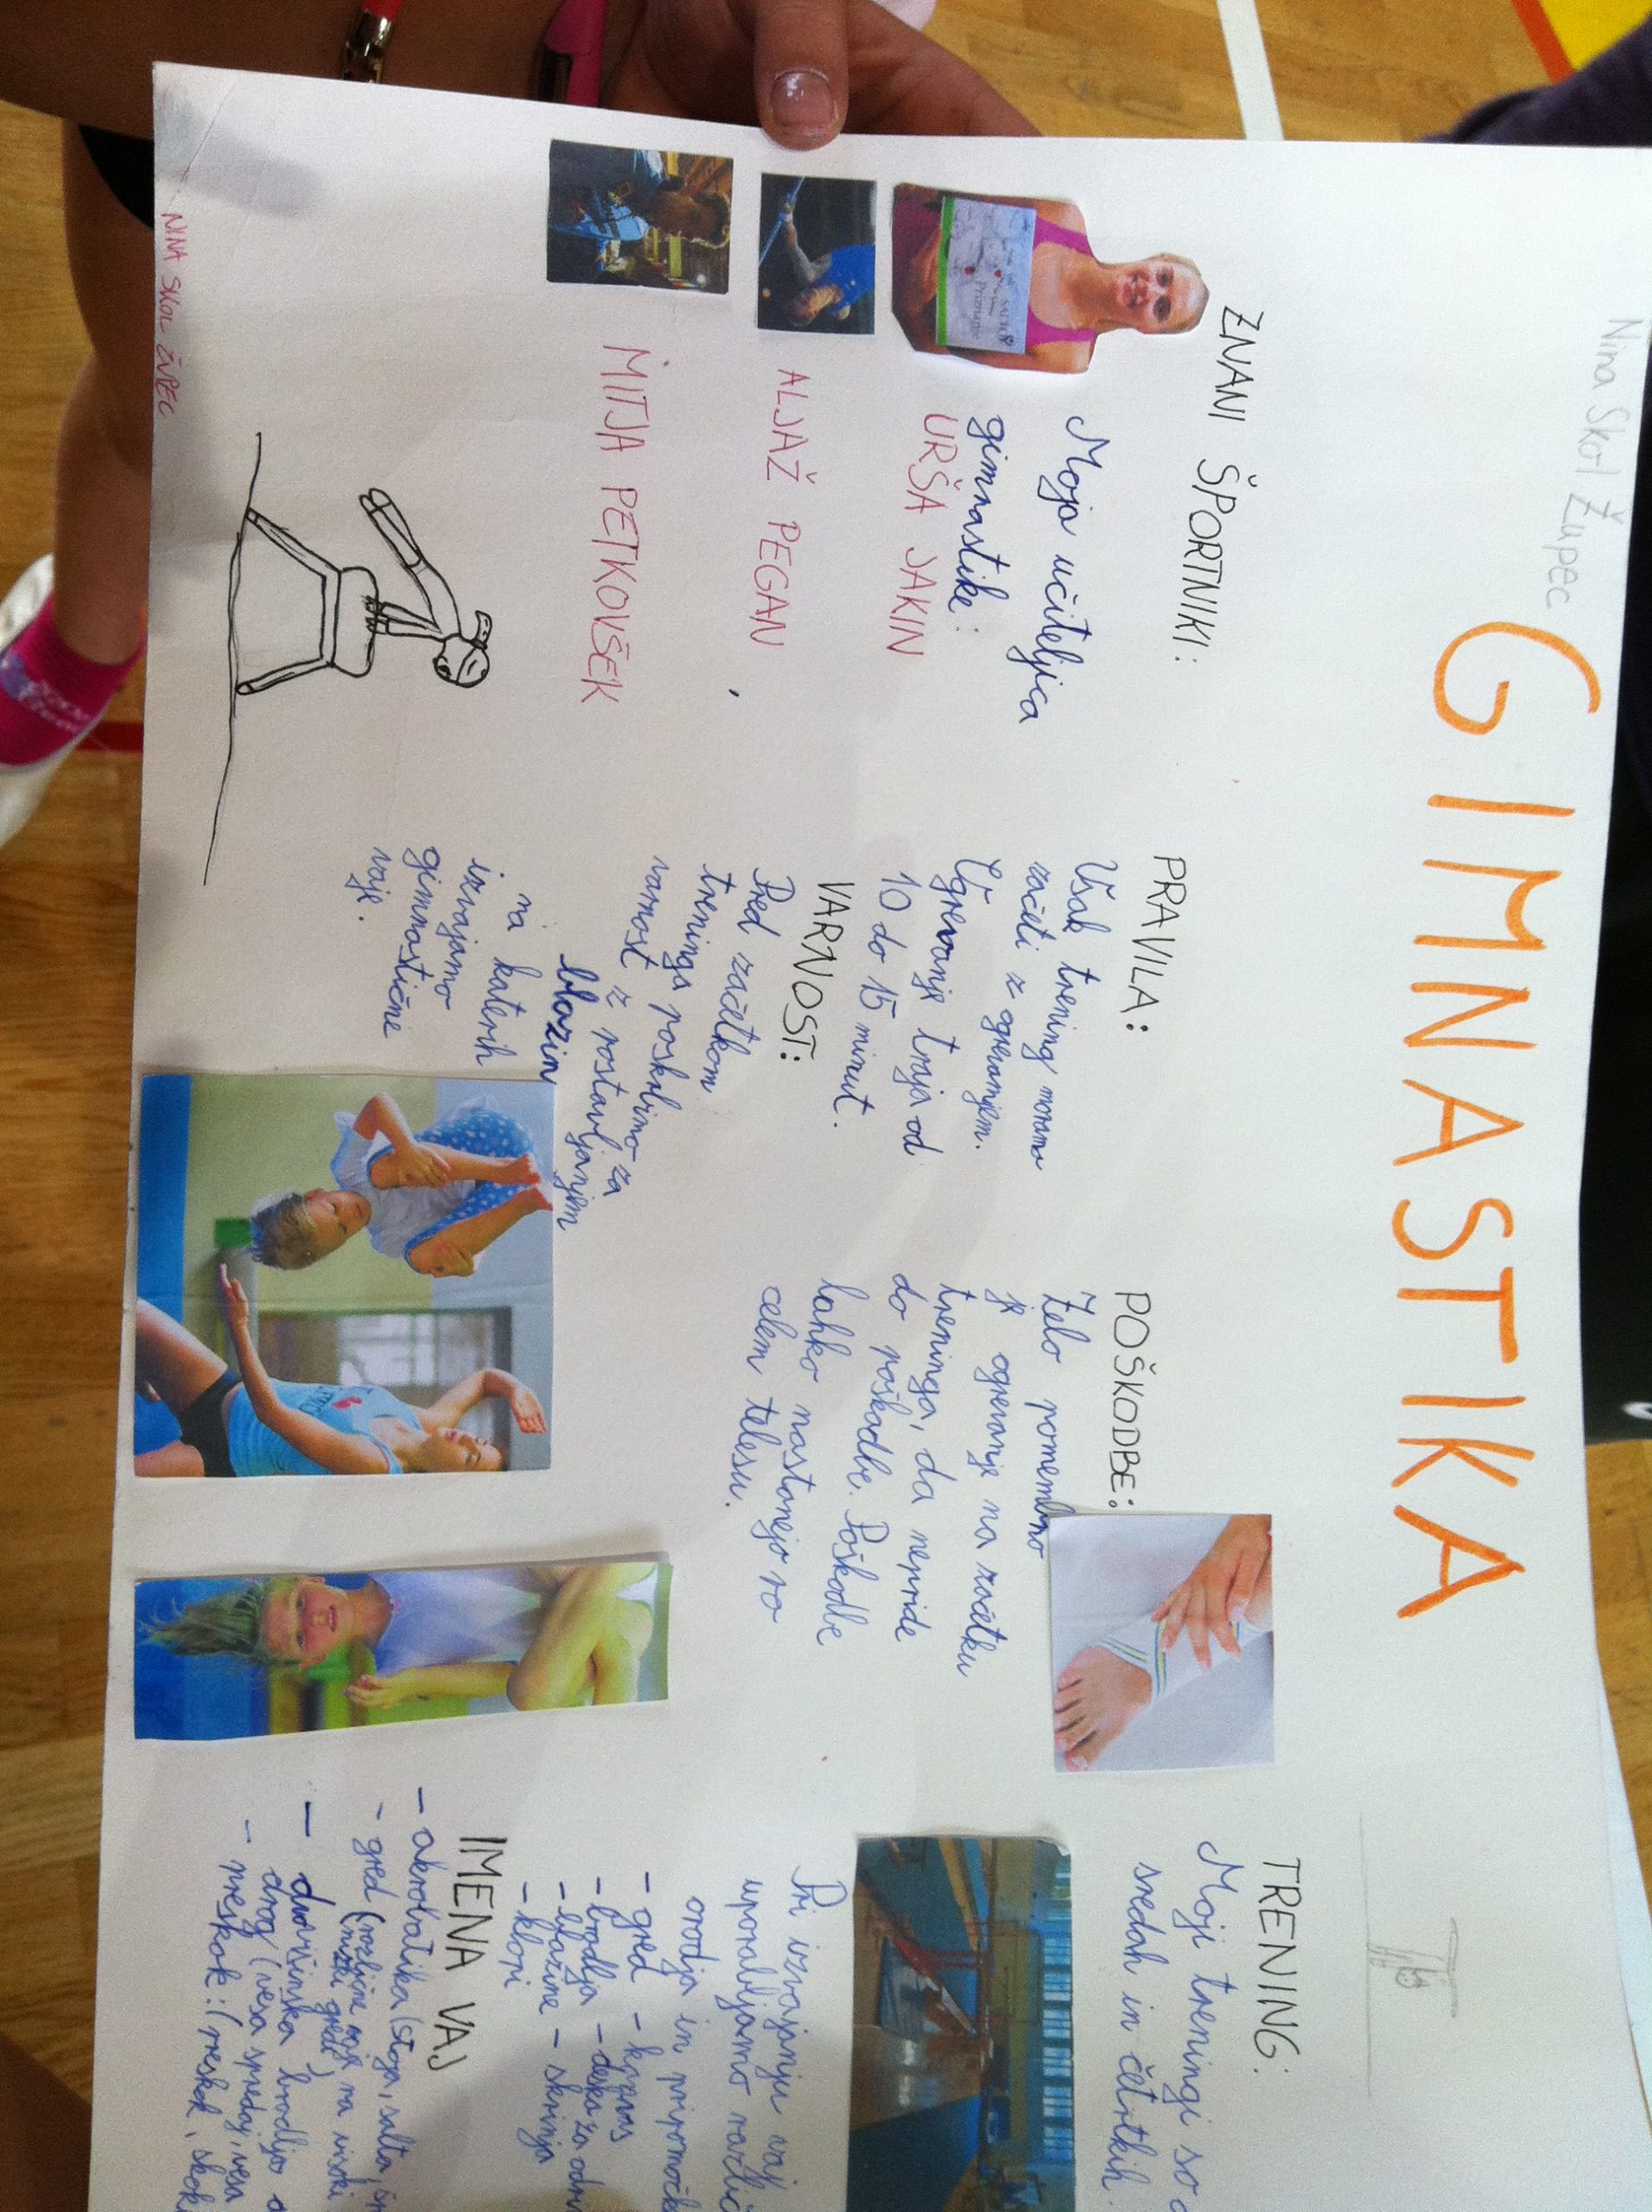 Nina Skol Župec
GIMNASTIKA
ZNANI ŠPORTNIKI:
Moja učiteljica
gimnastike:
URŠA JAKIN
ALJAŽ PEGAN
MITJA PETKOVŠEK
NINA SKOL ŽUPEC
Priznanje
PRAVILA:
Vsak trening moramo
začeti z ogrevanjem.
Ogrevanje traja od
10 do 15 minut.
VARNOST:
Pred začetkom
treninga poskrbimo za
varnost z postavljanjem
blazin
na katerih
izvajamo
gimnastične
vaje.
POŠKODBE:
Zelo pomembno
je ogrevanje na začetku
treninga, da nepride
do poškodbe. Poškodbe
lahko nastanejo na
celem telesu.
TRENING:
Moji treningi so
sredah in četrtkih.
Pri izvajanju vaj
uporabljamo različ
orodja in pripomočk
- gred - krogos
- bradlja - deska za odriv
- blazine - skrinja
- klopi
IMENA VAJ
- akrobatika (stoja, salta,
- gred (razlijne vaje na visoki
(nizki gredi)
- dvovišinska bradljo
drog (vesa spredaj, vesa
- preskok: (preskok, skok